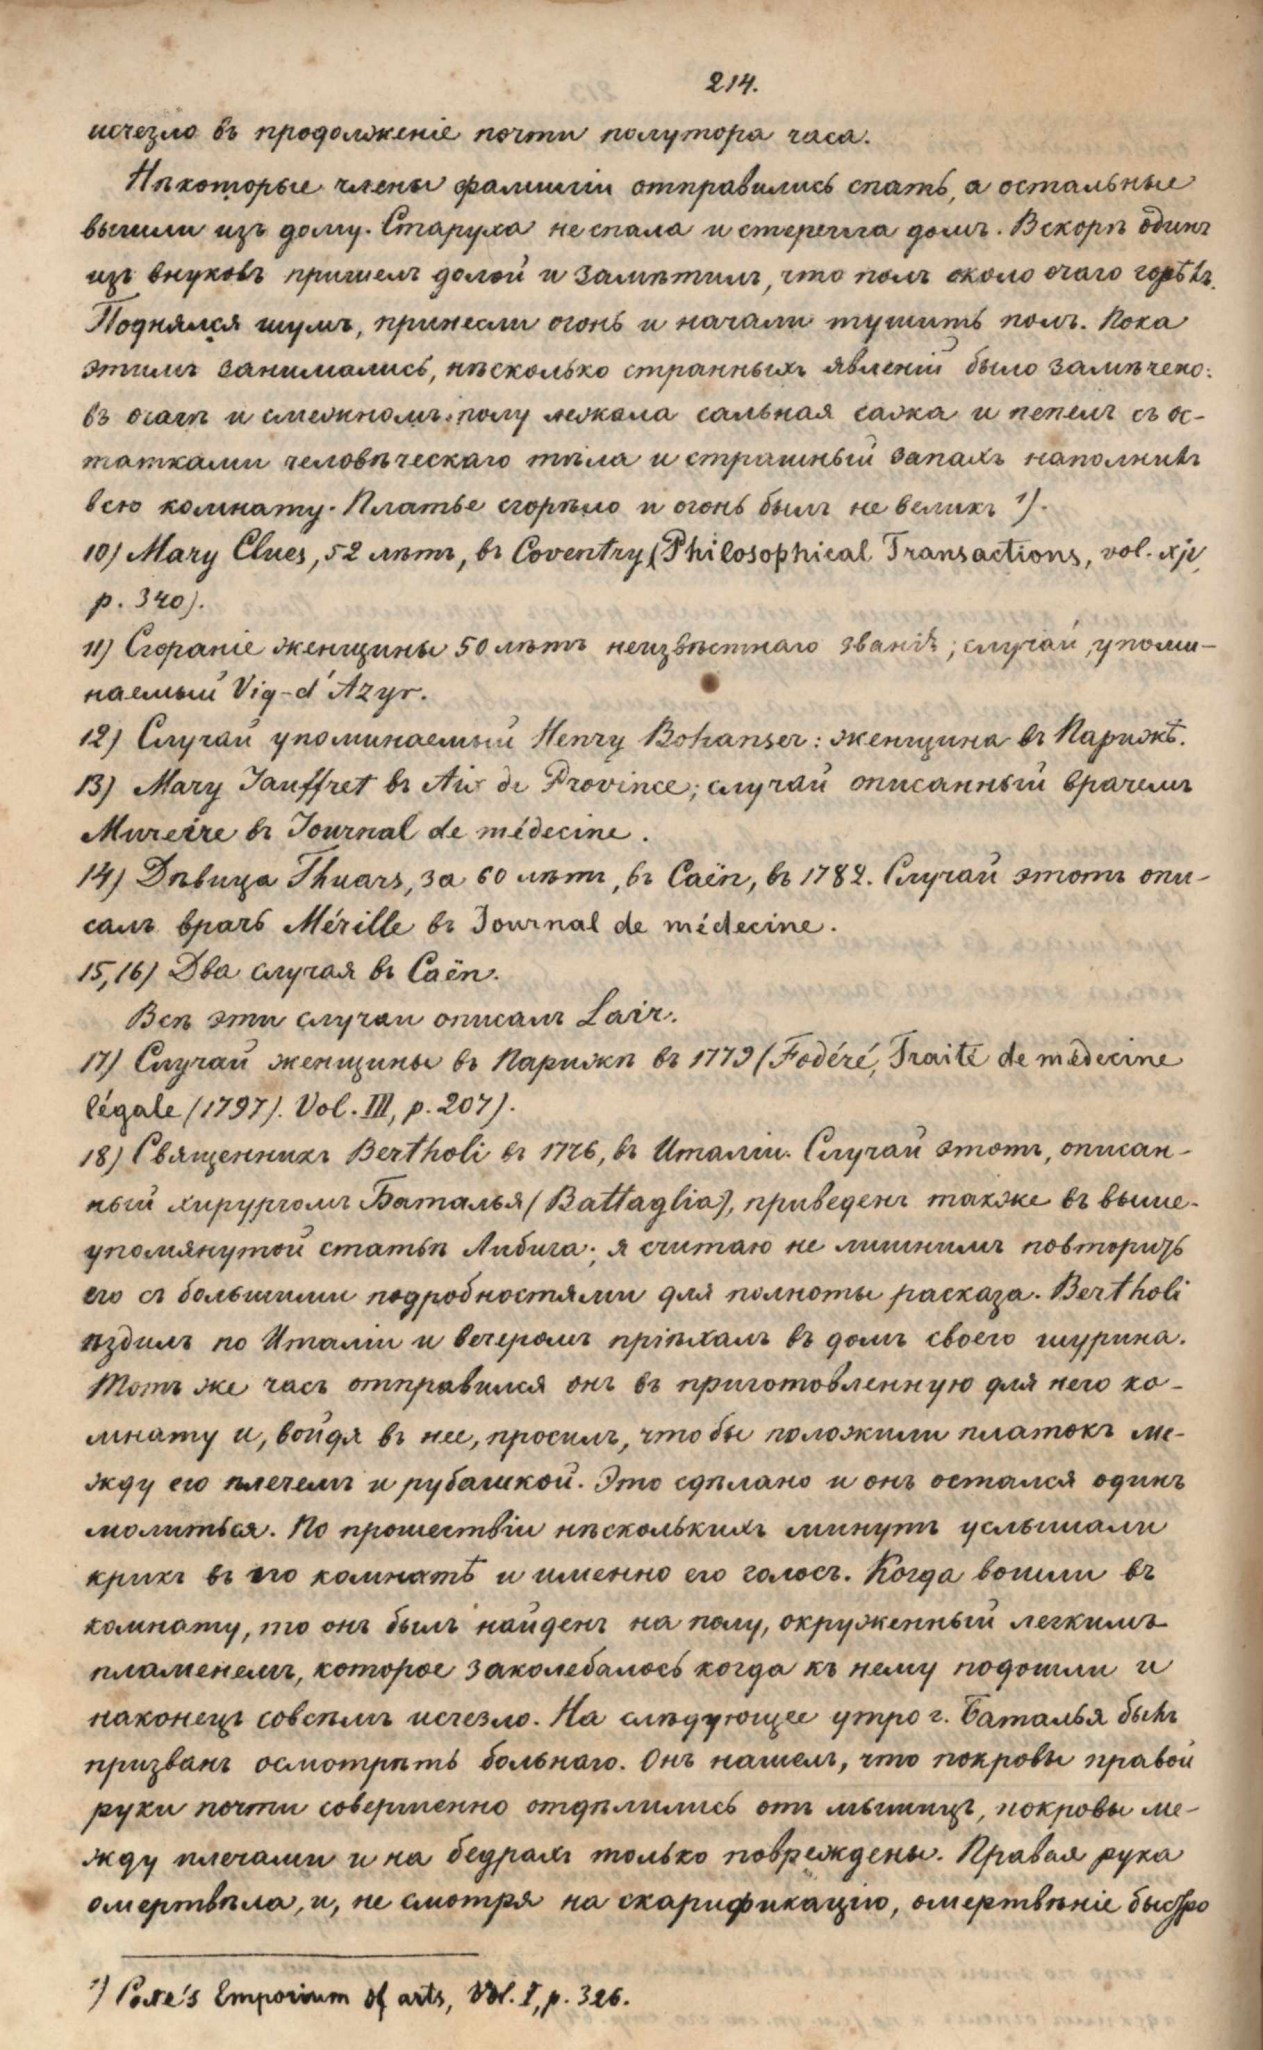 214.
исчезло въ продолженіе почти полутора часа.
Нѣкоторые члены фамиліи отправились спать, а остальные
вышли изъ дому. Старуха не спала и стерегла домъ. Вскорѣ одинъ
изъ внуковъ пришелъ домой и замѣтилъ, что полъ около очага горѣлъ.
Поднялся шумъ, принесли огонь и начали тушить полъ. Пока
этимъ занимались, нѣсколько странныхъ явленій было замѣчено:
въ очагѣ и смежномъ полу лежала сальная сажа и пепелъ съ ос-
татками человѣческаго тѣла и страшный запахъ наполнилъ
всю комнату. Платье сгорѣло и огонь былъ не великъ ¹).
10) Mary Clues, 52 лѣтъ, въ Coventry (Philosophical Transactions, vol.
p. 340).
11) Сгораніе женщины 50 лѣтъ неизвѣстнаго званія; случай, упоми-
наемый Viq-d'Azyr.
12) Случай упоминаемый Henry Bohanser: женщина въ Парижѣ.
13) Mary Jauffret въ Aix de Province; случай описанный врачемъ
Mureire въ Journal de médecine.
14) Дѣвица Thuars, за 60 лѣтъ, въ Caën, въ 1782. Случай этотъ опи-
салъ врачъ Mérille въ Journal de médecine.
15, 16) Два случая въ Caën.
Всѣ эти случаи описалъ Lair.
17) Случай женщины въ Парижѣ въ 1779 (Fodéré, Traité de médecine
légale (1797). Vol. III, p. 207).
18) Священникъ Bertholi въ 1776, въ Италіи. Случай этотъ, описан-
ный хирургомъ Баталья (Battaglia), приведенъ также въ выше-
упомянутой статьѣ Либига; я считаю не лишнимъ повторить
его съ большими подробностями для полноты расказа. Bertholi
ѣздилъ по Италіи и вечеромъ пріѣхалъ въ домъ своего шурина.
Тотъ же часъ отправился онъ въ приготовленную для него ко-
мнату и, войдя въ нее, просилъ, что бы положили платокъ ме-
жду его плечемъ и рубашкой. Это сдѣлано и онъ остался одинъ
молиться. По прошествіи нѣсколькихъ минутъ услышали
крикъ въ его комнатѣ и именно его голосъ. Когда вошли въ
комнату, то онъ былъ найденъ на полу, окруженный легкимъ
пламенемъ, которое заколебалось когда къ нему подошли и
наконецъ совсѣмъ исчезло. На слѣдующее утро г. Баталья былъ
призванъ осмотрѣть больнаго. Онъ нашелъ, что покровы правой
руки почти совершенно отдѣлились отъ мышицъ, покровы ме-
жду плечами и на бедрахъ только повреждены. Правая рука
омертвѣла, и, не смотря на скарификацію, омертвѣніе быстро
¹) Coxe's Emporium of arts, Vol. I, p. 326.